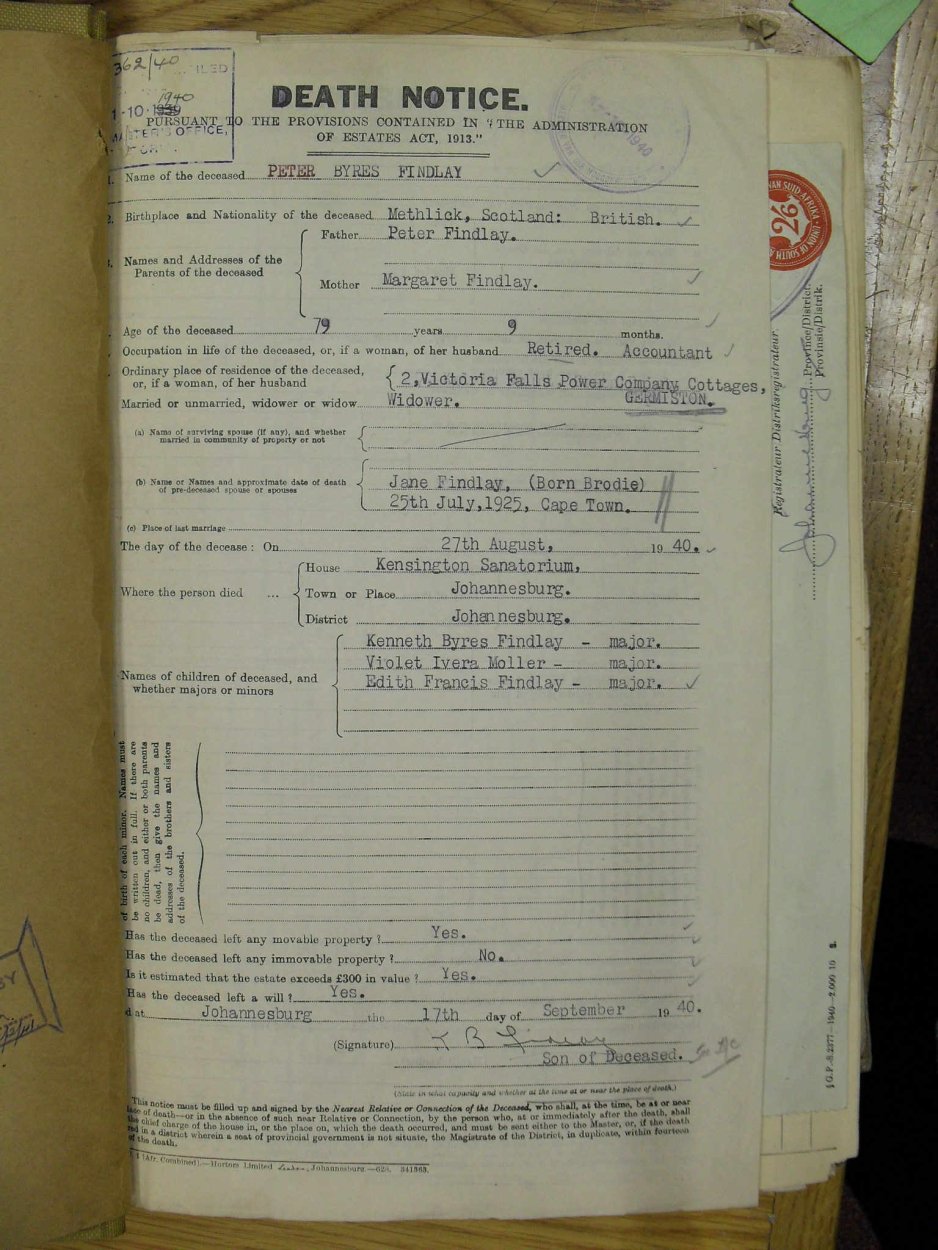 362/40
FILED
1940
1-10-1939
MASTER'S OFFICE,
DEATH NOTICE.
PURSUANT TO THE PROVISIONS CONTAINED IN "THE ADMINISTRATION
OF ESTATES ACT, 1913."
1940
Name of the deceased PETER BYRES FINDLAY
2. Birthplace and Nationality of the deceased Methlick, Scotland: British.
Names and Addresses of the
Parents of the deceased
Father Peter Findlay.
Mother Margaret Findlay.
Age of the deceased 79 years 9 months.
Occupation in life of the deceased, or, if a woman, of her husband Retired. Accountant
Ordinary place of residence of the deceased,
or, if a woman, of her husband
2, Victoria Falls Power Company Cottages,
GERMISTON.
Married or unmarried, widower or widow Widower.
(a) Name of surviving spouse (if any), and whether
married in community of property or not
(b) Name or Names and approximate date of death
of pre-deceased spouse or spouses
Jane Findlay, (Born Brodie)
25th July,1925, Cape Town.
(c) Place of last marriage
The day of the decease: On 27th August, 19 40.
Where the person died ...
House Kensington Sanatorium,
Town or Place Johannesburg.
District Johannesburg.
Names of children of deceased, and
whether majors or minors
Kenneth Byres Findlay - major.
Violet Ivera Moller - major.
Edith Francis Findlay - major.
of birth of each minor. Names must
be written out in full. If there are
no children, and either or both parents
be dead, then give the names and
addresses of the brothers and sisters
of the deceased.
Has the deceased left any movable property? Yes.
Has the deceased left any immovable property? No.
Is it estimated that the estate exceeds £300 in value? Yes.
Has the deceased left a will? Yes.
d at Johannesburg the 17th day of September 19 40.
(Signature) K B Findlay
Son of Deceased.
(State in what capacity and whether at the time at or near the place of death.)
This notice must be filled up and signed by the Nearest Relative or Connection of the Deceased, who shall, at the time, be at or near
of death—or in the absence of such near Relative or Connection, by the person who, at or immediately after the death, shall
the chief charge of the house in, or the place on, which the death occurred, and must be sent either to the Master, or, if the death
in a district wherein a seat of provincial government is not situate, the Magistrate of the District, in duplicate, within fourteen
of the death.
(Afr. Combined).—Hortors Limited, Johannesburg—628. 341363.
VAN SUID-AFRIKA · UNION OF SOUTH
2/6
Registrateur/Distriksregistrateur.
Province/District.
Provinsie/Distrik.
G.P.-S.2377—1940—2,000 10 S.